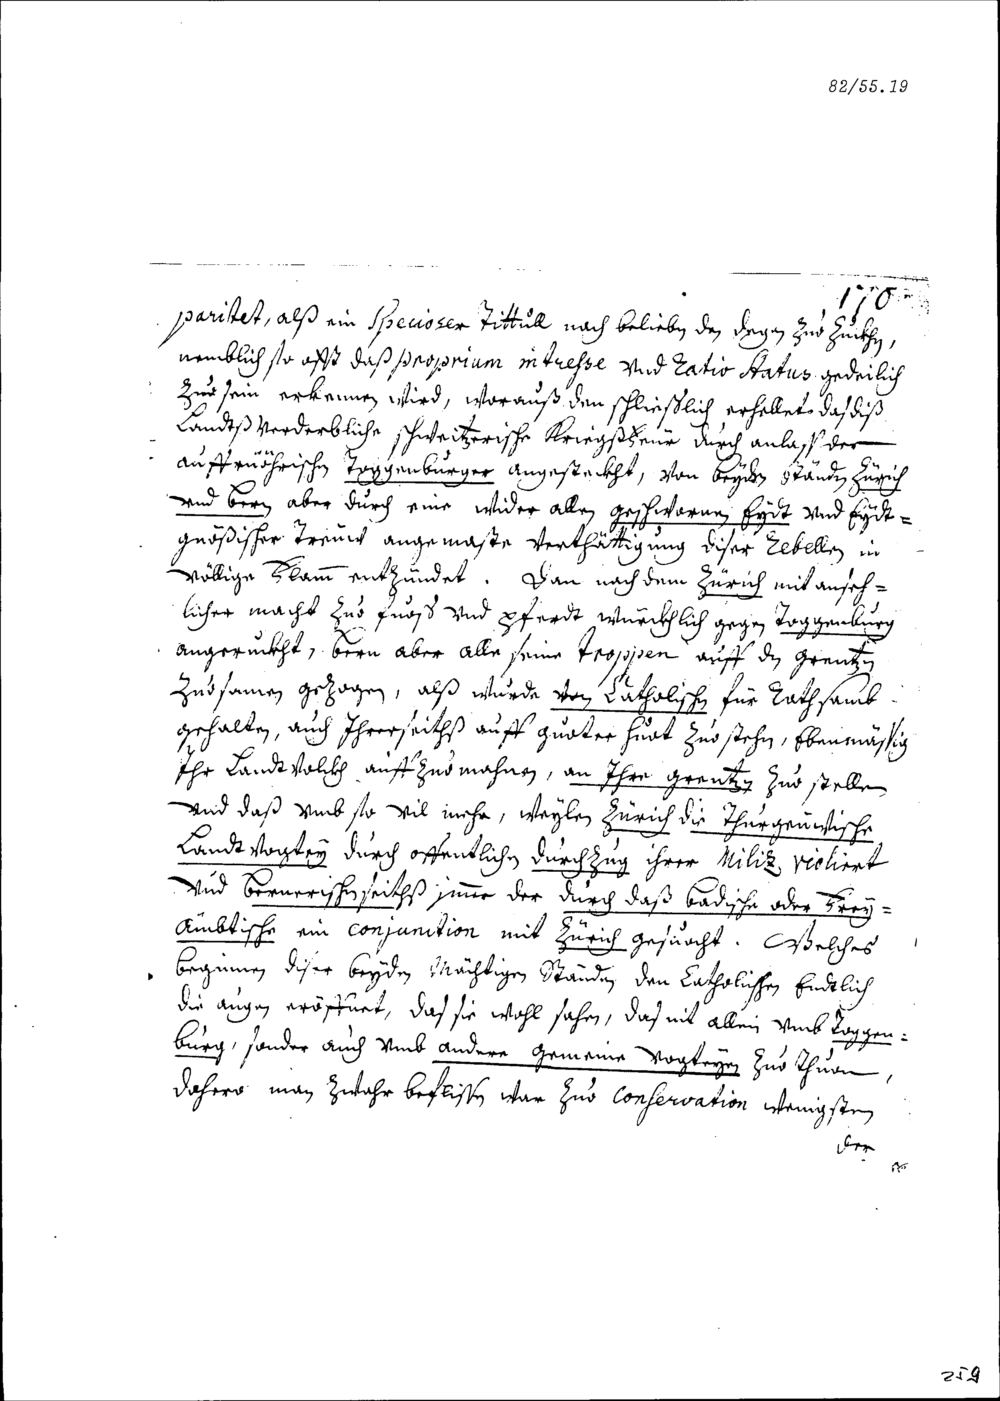 82/55.19
170
paritet, alß ein Specioser Tittull nach belieben den degen Zuo Zuckhen,
nemblich so offt daß proprium intresse Vnd Ratio Status gedeilich
Zuo sein erkennen wird, worauß den schließlich erhellet das diß
Landtß Verderbliche schweitzerische Kriegßfeür durch anlass der
auffrüöhrischen Toggenburger angesteckht, von beyden Ständen Zürich
vnd Bern aber durch eine wider allen geschwornen Eydt vnd Eydt=
gnößischer Treüw angemaste Verthättigung diser Rebellen in
völlige Flam̄ entzündet. Dan nach dem Zürich mit anseh=
licher macht Zuo fuoß vnd pferdt würckhlich gegen Toggenburg
angeruckht, Bern aber alle seine Troppen auff den Grentzen
Zuosamen gezogen, alß wurde von Catholischen für Rathsamb
gehalten, auch Ihrerseithß auff guoter huot Zuo stehen, Ebenmässig
Ihr Landt Volckh auff Zuo mahnen, an Ihre Grentzen Zuo stellen
vnd daß vmb so vil mehr, weylen Zürich die Thurgeüwische
Landt Vogtey durch offentlichen durchzug ihrer Miliz violiert
Vnd Bernerischen seithß jm̄er der durch daß Badische oder Frey=
Ämbtische ein conjunction mit Zürich gesuocht. Welches
beginnen diser beyden Mächtigen Ständen den Catholischen Endtlich
die augen eröffnet, das sie wohl sahen, das nit allein vmb Toggen=
burg, sonder auch vmb andere gemeine Vogteyen Zuo thuon,
dahero man Zwahr beflissen war Zuo Conservation wenigsten
der
259